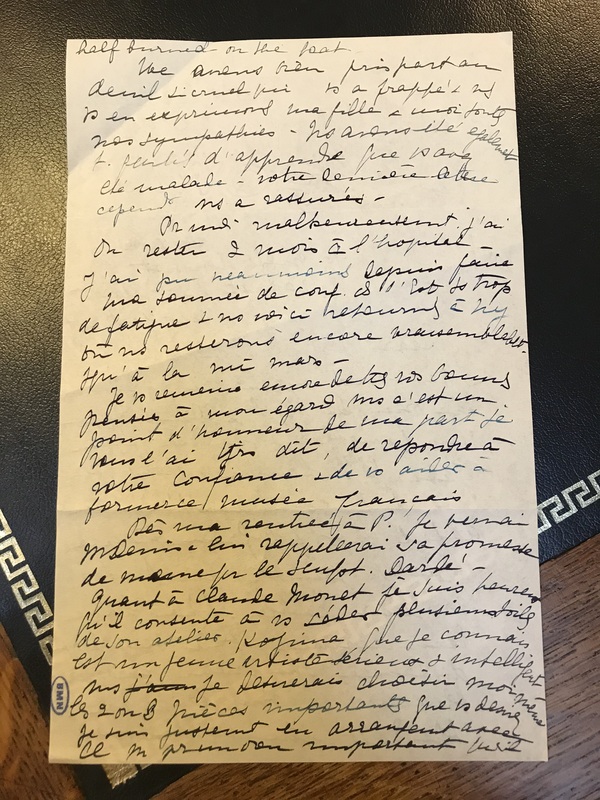 half burned on the boat.
Nous avons bien pris part au
deuil si cruel qui vs a frappé & ns
vs en exprimons ma fille & moi toutes
nos sympathies - Ns avons été également
d'apprendre que vs avez
été malade - votre dernière lettre
cepend. ns a rassurés -
malheureusement j'ai
dû rester 2 mois à l'hôpital -
J'ai pu néanmoins depuis faire
ma tournée de conf. ds l'Est ss trop
de fatigue & ns voici retournés à Ny
où ns resterons encore vraisemblablem.
jsqu'à la mi mars -
Je vs remercie encore de ttes vos bonnes
pensées à mon égard ms c'est un
point d'honneur de ma part je
vous l'ai tjrs dit, de répondre à
votre confiance & de vs aider à
former ce musée français
Dès ma rentrée à P. je verrai
M Denis & lui rappellerai sa promesse
de même pr le sculpt. Dardé -
Quant à Claude Monet je suis heureux
qu'il consente à vs céder plusieurs toiles
de son atelier. Kojima que je connais
est un jeune artiste sérieux & intelligent
ms j'au je désirerais choisir moi même
les 2 ou 3 pièces importantes que vs désirez
je suis justement en arrangement avec
important
BMN